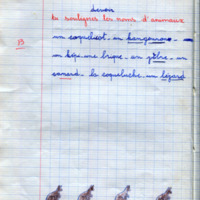 devoir
tu soulignes les noms d'animaux
un coquelicot - un kangourou -
un képi - une brique - un zèbre - un
renard - la coqueluche - un lézard